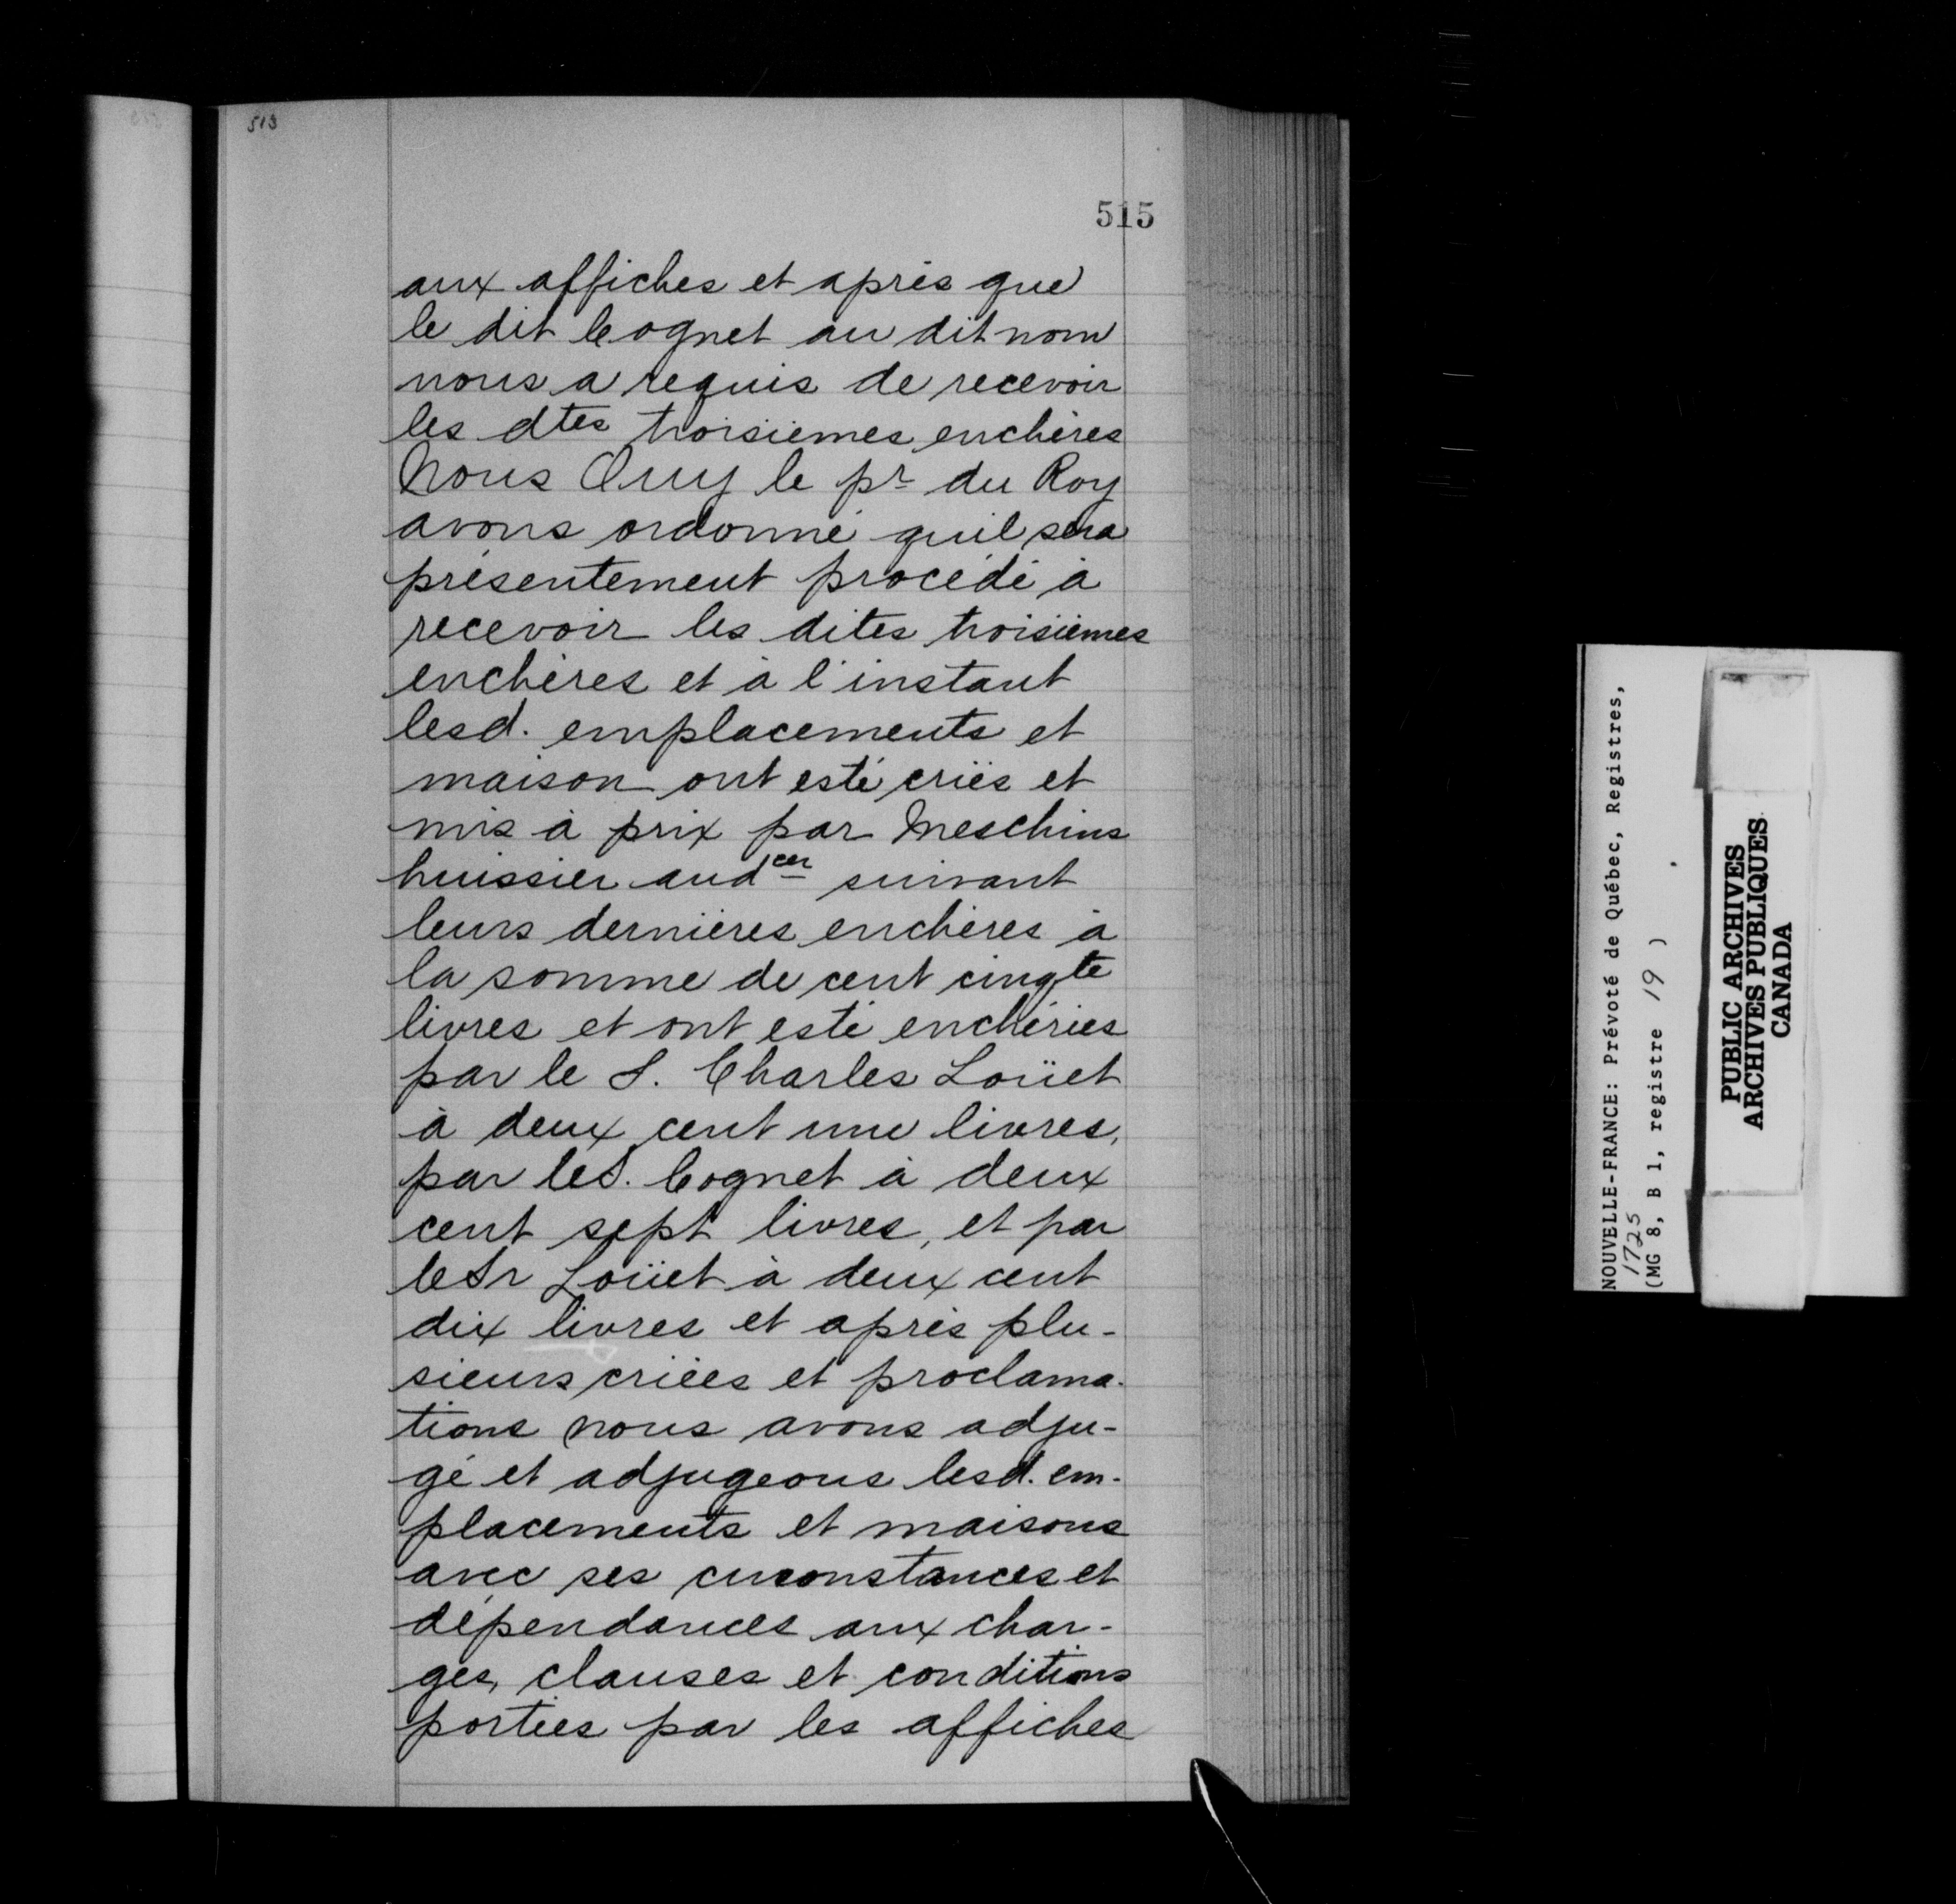 513
515
aux affiches et après que
le dit Cognet au dit nom
nous a requis de recevoir
les dtes troisièmes enchères
Nous Ouy le pr du Roy
avons ordonné quil sera
présentement procédé à
recevoir les dites troisièmes
enchères et à l'instant
lesd. emplacements et
maison ont esté criés et
mis à prix par Meschins
huissier audcer suivant
leurs dernières enchères à
la somme de cent cinqte
livres et ont esté enchéries
par le S. Charles Loüet
à deux cent une livres,
par le S. Cognet à deux
cent sept livres, et par
le Sr Loüet à deux cent
dix livres et après plu-
sieurs criées et proclama-
tions nous avons adju-
gé et adjugeons lesd. em-
placements et maisons
avec ses circonstances et
dépendances aux char-
ges, clauses et conditions
portées par les affiches
NOUVELLE-FRANCE: Prévoté de Québec, Registres,
1725
(MG 8, B 1, registre 19 )
PUBLIC ARCHIVES
ARCHIVES PUBLIQUES
CANADA